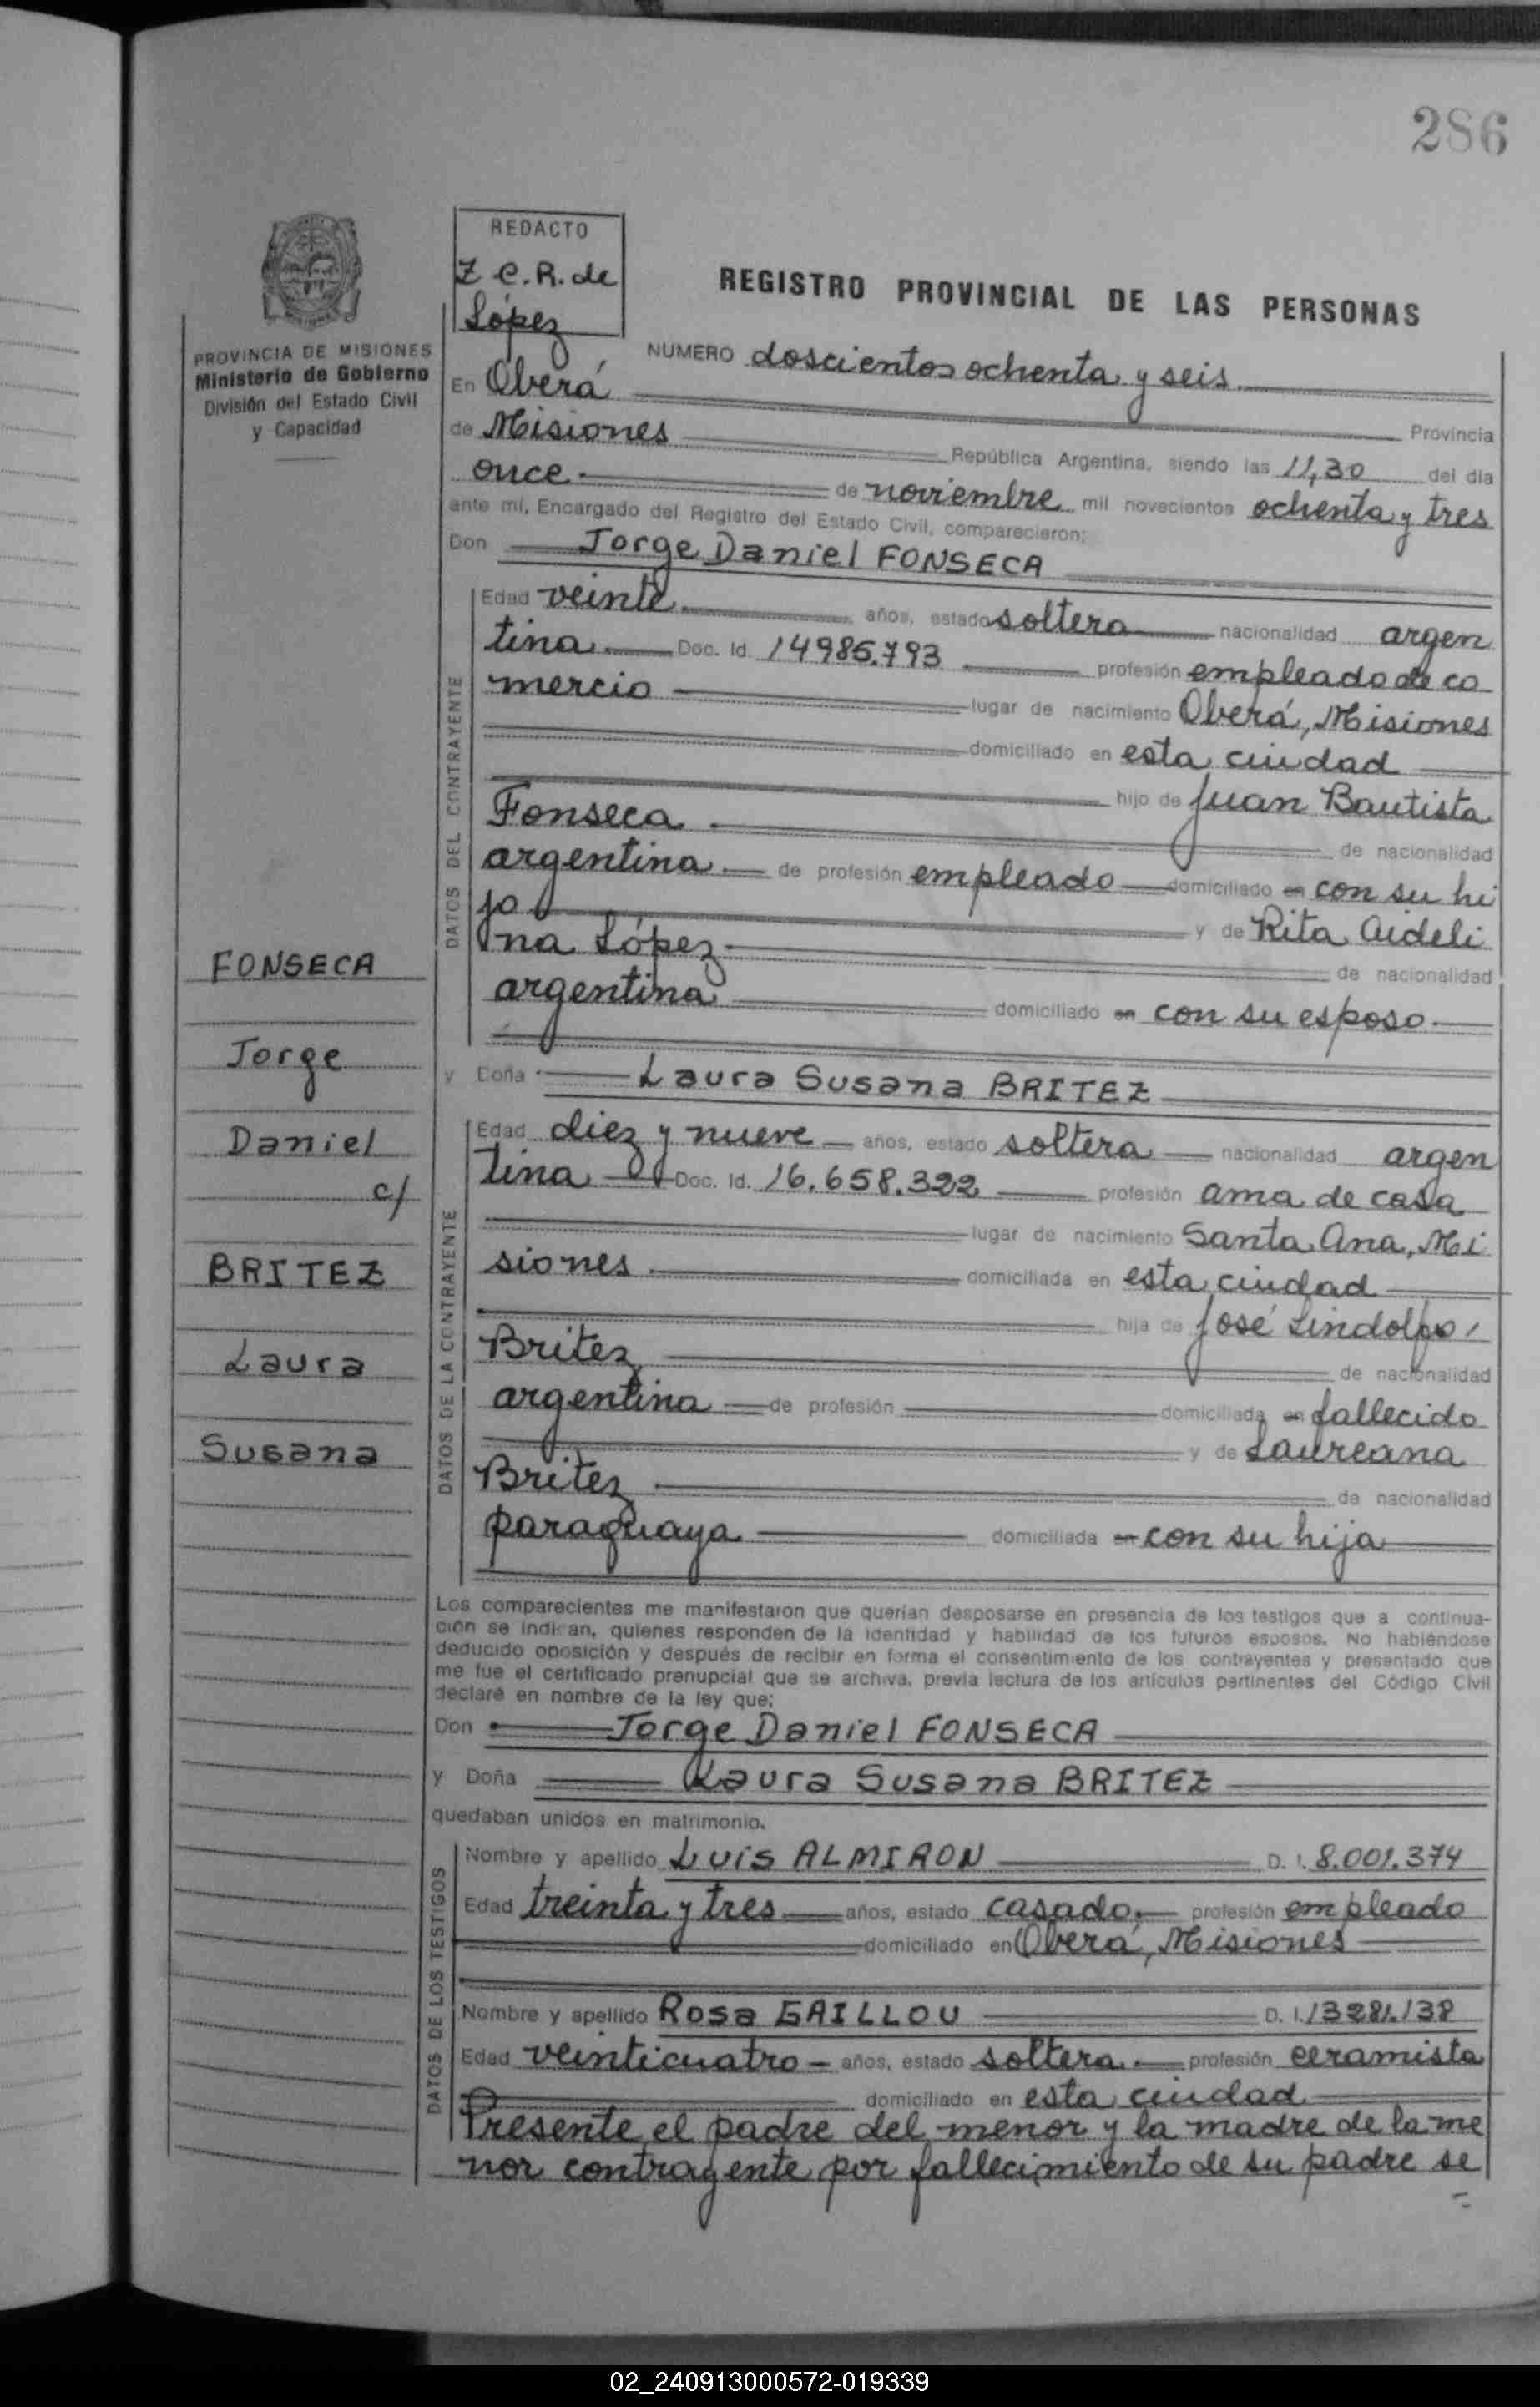 286
REDACTO
Z C. R. de
López
REGISTRO PROVINCIAL DE LAS PERSONAS
PROVINCIA DE MISIONES
Ministerio de Gobierno
División del Estado Civil
y Capacidad
NUMERO doscientos ochenta y seis
En Oberá
Provincia
de Misiones República Argentina, siendo las 11,30 del día
once de noviembre mil novecientos ochenta y tres
ante mí, Encargado del Registro del Estado Civil, comparecieron:
Don Jorge Daniel FONSECA
DATOS DEL CONTRAYENTE
Edad veinte años, estado soltera nacionalidad argen
tina Doc. Id. 14985.793 profesión empleado de co
mercio lugar de nacimiento Oberá, Misiones
domiciliado en esta ciudad
hijo de Juan Bautista
Fonseca de nacionalidad
argentina de profesión empleado domiciliado en con su hi
jo y de Rita Aideli
na López de nacionalidad
argentina domiciliado en con su esposo
y Doña Laura Susana BRITEZ
DATOS DE LA CONTRAYENTE
Edad diez y nueve años, estado soltera nacionalidad argen
tina Doc. Id. 16.658.322 profesión ama de casa
lugar de nacimiento Santa Ana, Mi
siones domiciliada en esta ciudad
hija de José Lindolfo
Britez de nacionalidad
argentina de profesión domiciliada en fallecido
y de Laureana
Britez de nacionalidad
paraguaya domiciliada en con su hija
FONSECA
Jorge
Daniel
c/
BRITEZ
Laura
Susana
Los comparecientes me manifestaron que querían desposarse en presencia de los testigos que a continua-
ción se indican, quienes responden de la identidad y habilidad de los futuros esposos. No habiéndose
deducido oposición y después de recibir en forma el consentimiento de los contrayentes y presentado que
me fue el certificado prenupcial que se archiva, previa lectura de los artículos pertinentes del Código Civil
declaré en nombre de la ley que:
Don Jorge Daniel FONSECA
y Doña Laura Susana BRITEZ
quedaban unidos en matrimonio.
DATOS DE LOS TESTIGOS
Nombre y apellido Luis ALMIRON D. I. 8.001.374
Edad treinta y tres años, estado casado profesión empleado
domiciliado en Oberá, Misiones
Nombre y apellido Rosa GAILLOU D. I. 13281.138
Edad veinticuatro años, estado soltera profesión ceramista
domiciliado en esta ciudad
Presente el padre del menor y la madre de la me
nor contrayente por fallecimiento de su padre se
02_240913000572-019339